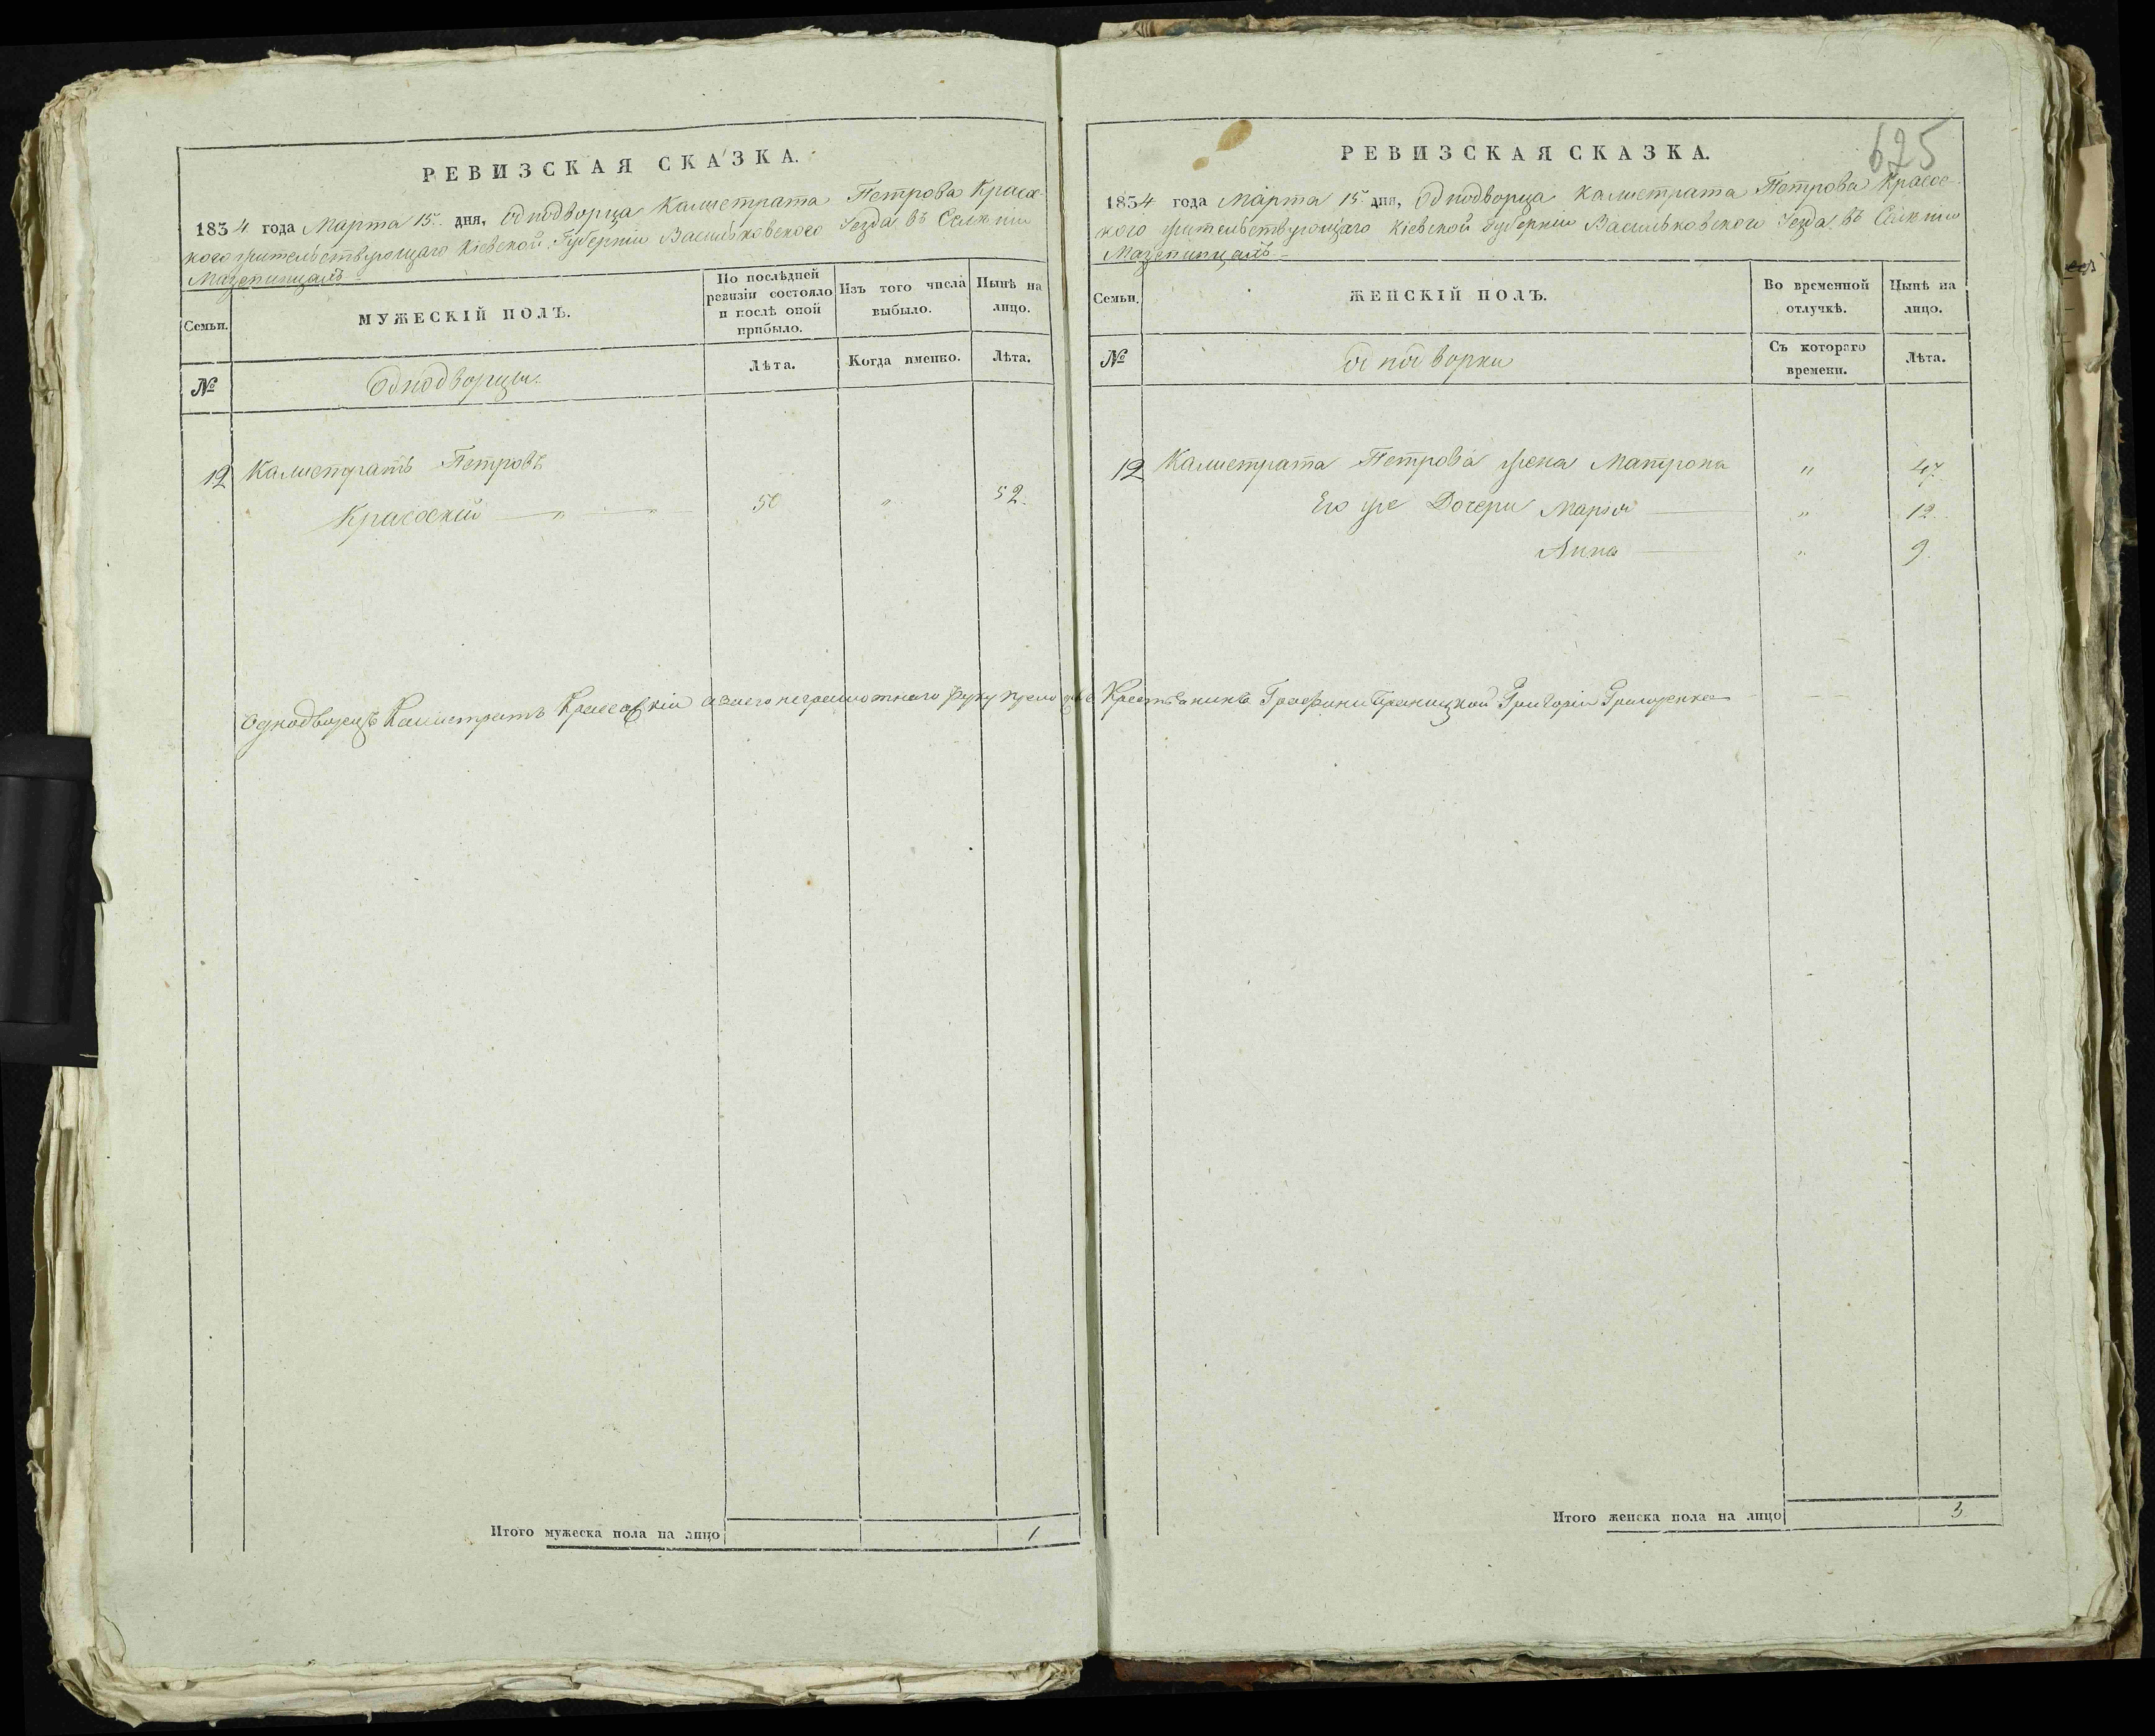 РЕВИЗСКАЯ СКАЗКА.
1834 года Марта 15 дня, Однодворца Калистрата Петрова Красов-
кого жительствующаго Кіевской Губерніи Васильковского Уезда въ Селеніи
Мазепинцахъ
Семьи.
МУЖЕСКІЙ ПОЛЪ.
По послѣдней ревизіи состояло и послѣ оной прибыло.
Изъ того числа выбыло.
Нынѣ на лицо.
№
Однодворцы.
Лѣта.
Когда именно.
Лѣта.
12 Калистратъ Петровъ
Красоскій — „ — „ — 50 „ 52.
Однодворецъ Калистратъ Красовскій а заего неграмотнаго руку приложилъ
Итого мужеска пола на лицо 1
625
РЕВИЗСКАЯ СКАЗКА.
1834 года Марта 15 дня, Однодворца Калистрата Петрова Красос-
кого жительствующаго Кіевской Губерніи Васильковского Уезда въ Селеніи
Мазепинцахъ
Семьи.
ЖЕНСКІЙ ПОЛЪ.
Во временной отлучкѣ.
Нынѣ на лицо.
№
Однодворки
Съ котораго времени.
Лѣта.
12 Калистрата Петрова жена Матрона „ 47.
Его же Дочери Марія — „ 12.
Анна — „ 9.
Крестьянинъ Графини Браницкой Григорій Григоренко
Итого женска пола на лицо 3